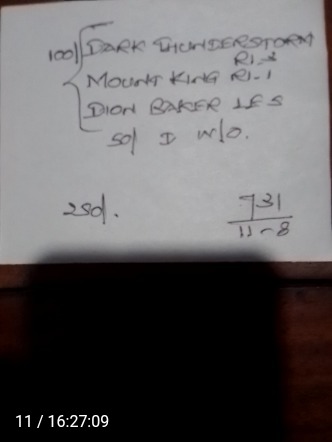 100/ DARK THUNDERSTORM
R1-3
MOUNT KING R1-1
DION BAKER 1ES
50/ I W/O.
250/.
731
11-8
11 / 16:27:09